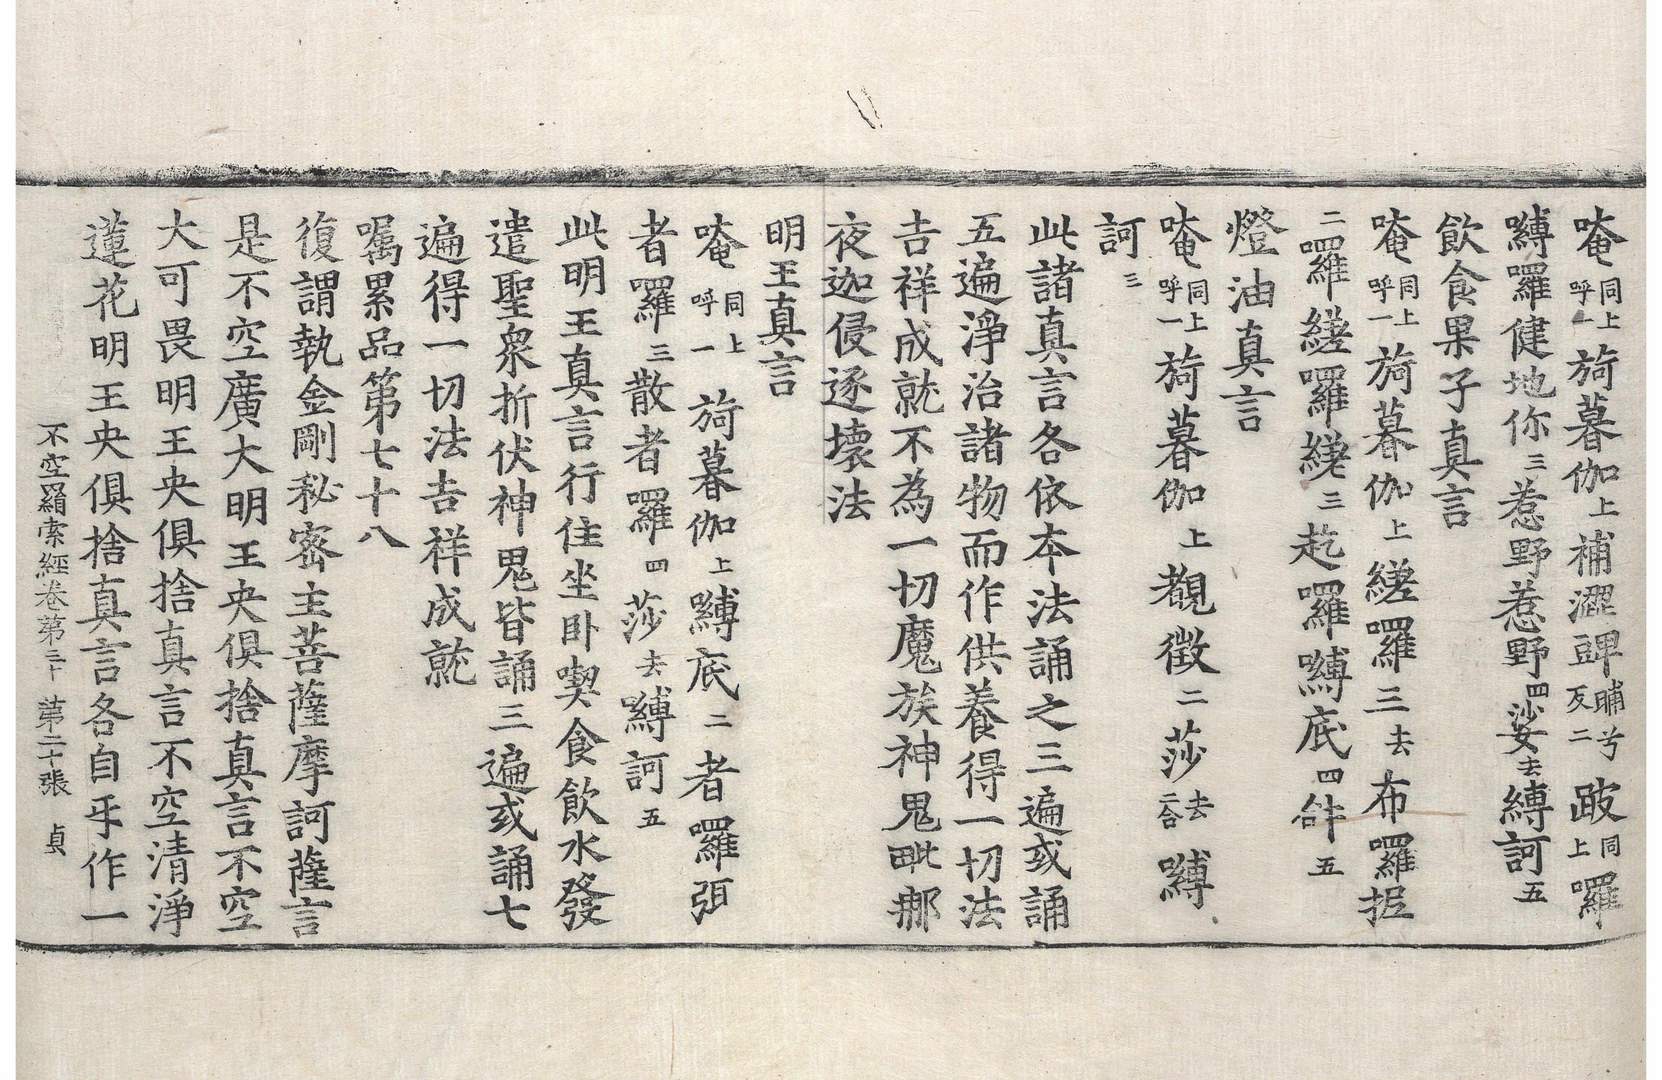 唵同上呼一旖暮伽上補澀㗱晡兮反二跛同上囉
嚩囉健地你三惹野惹野四娑去嚩訶五
飲食果子真言
唵同上呼一旖暮伽上縒囉三去布囉抳
二囉縒囉縒三訖囉嚩底四𤙖五
燈油真言
唵同上呼一旖暮伽上覩徵二莎去二合嚩
訶三
此諸真言各依本法誦之三遍或誦
五遍淨治諸物而作供養得一切法
吉祥成就不為一切魔族神鬼毗那
夜迦侵逐壞法
明王真言
唵同上呼一旖暮伽上嚩底二者囉弭
者囉三散者囉四莎去嚩訶五
此明王真言行住坐臥喫食飲水發
遣聖眾折伏神鬼皆誦三遍或誦七
遍得一切法吉祥成就
囑累品第七十八
復謂執金剛秘密主菩薩摩訶薩言
是不空廣大明王央俱捨真言不空
大可畏明王央俱捨真言不空清淨
蓮花明王央俱捨真言各自手作一
不空羂索經卷第三十 第二十張 貞